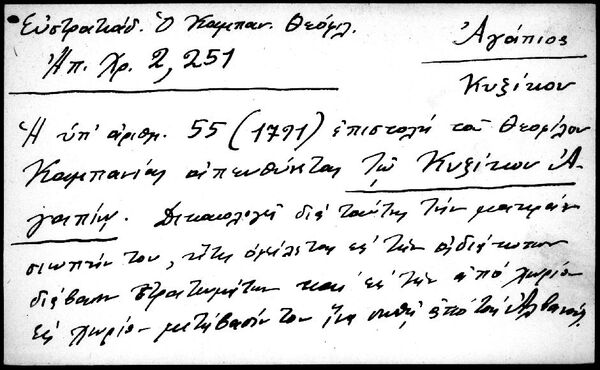 Εὐστρατιάδ. Ὁ Καμπαν. Θεόφιλ.
Ἠπ. Χρ. 2, 251
Ἀγάπιος
Κυζίκου
Ἡ ὑπ' ἀριθμ. 55 (1791) ἐπιστολὴ τοῦ Θεοφίλου
Καμπανίας ἀπευθύνεται τῷ Κυζίκου Ἀ-
γαπίῳ. Δικαιολογεῖ διὰ ταύτης τὴν μακρὰν
σιωπήν του, ἥτις ὀφείλεται εἰς τὴν ἀδιάκοπον
διάβασιν στρατευμάτων καὶ εἰς τὴν ἀπὸ χωρίου
εἰς χωρίον μετάβασίν του ἵνα σωθῇ ἀπὸ τοὺς Ἀλβανούς.